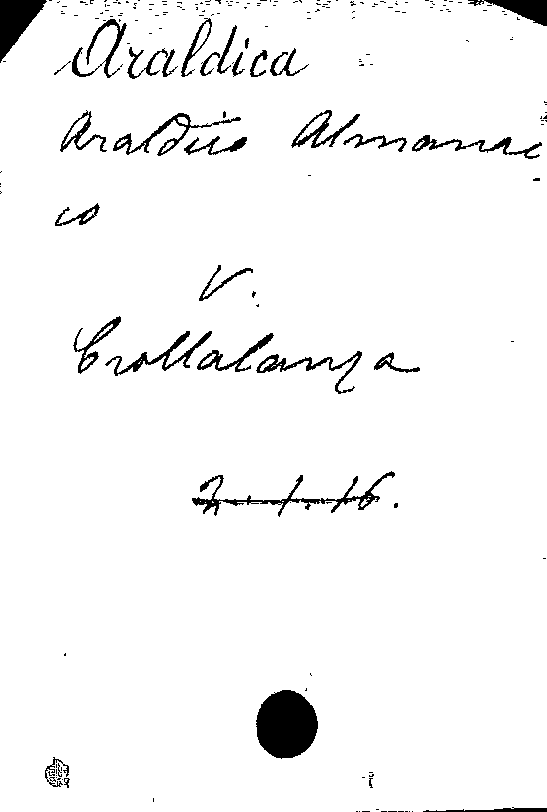 Araldica
Araldico Almanac
co
V.
Crollalanza
2.1.16.